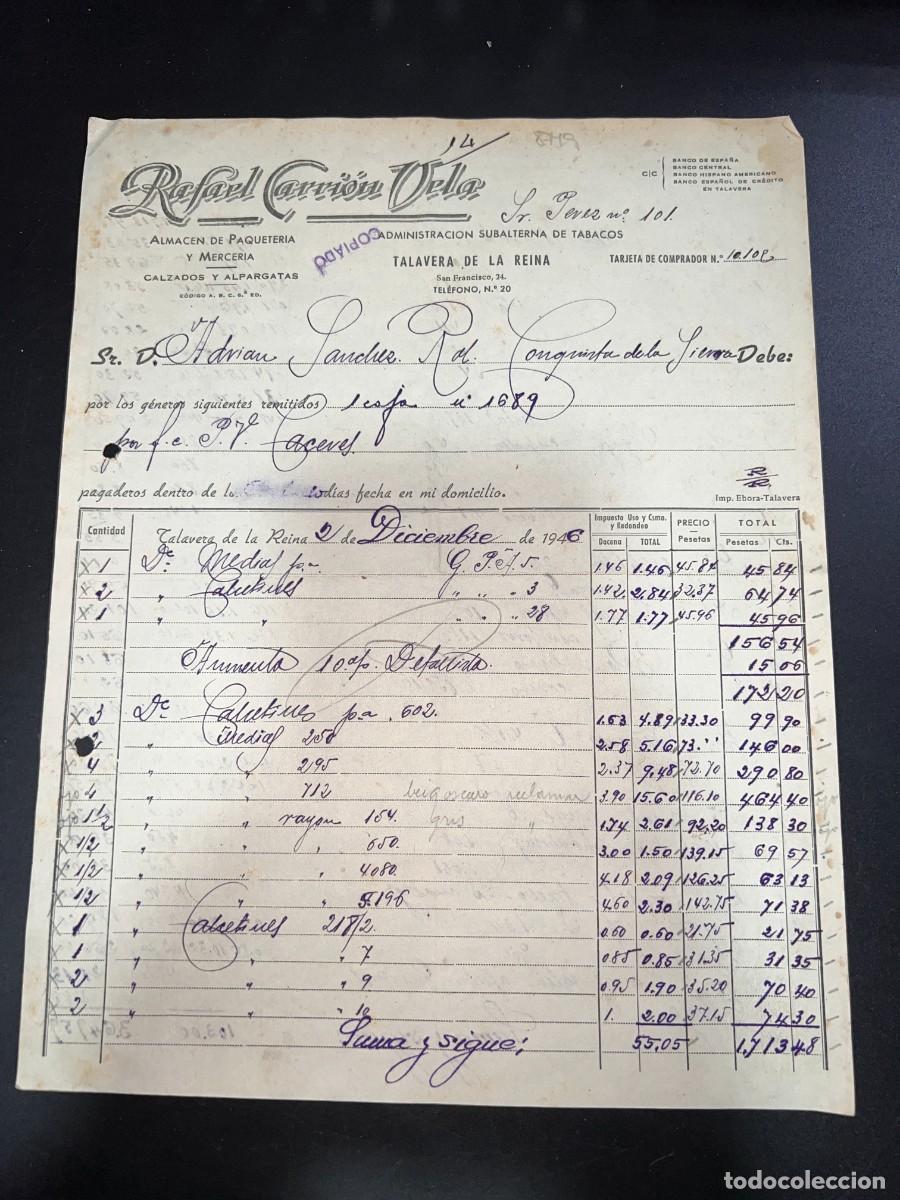 14/
Rafael Carrión Vela
C/C BANCO DE ESPAÑA
BANCO CENTRAL
BANCO HISPANO AMERICANO
BANCO ESPAÑOL DE CRÉDITO
EN TALAVERA
Sr. Perez nº 101.
ALMACEN DE PAQUETERIA
Y MERCERIA
CALZADOS Y ALPARGATAS
CÓDIGO A. B. C. 5.ª ED.
COPIADO
ADMINISTRACION SUBALTERNA DE TABACOS
TALAVERA DE LA REINA
San Francisco, 24.
TELÉFONO, N.º 20
TARJETA DE COMPRADOR N.º
Sr. D. Adrian Sanchez Rol. Conquista de la Sierra Debe:
por los géneros siguientes remitidos 1 caja nº 1689
por f. c. P.V. Caceres.
pagaderos dentro de lo días fecha en mi domicilio.
Imp. Ebora-Talavera
Cantidad Talavera de la Reina 2 de Diciembre de 1946 Impuesto Uso y Csmo. y Redondeo Docena TOTAL PRECIO Pesetas TOTAL Pesetas Cts.
X 1 Dc. Medias p.a G. P. 5. 1.46 1.46 45.84 45 84
X 2 " Calcetines " " " 3 1.42 2.84 32.37 64 74
X 1 " " " " " 28 1.77 1.77 45.96 45 96
156 54
Aumenta 10 o/o Detallista. 15 66
172 20
X 3 Dc Calcetines p.a 602. 1.63 4.89 33.30 99 90
X 2 " Medias 250 2.58 5.16 73.'' 146 00
X 4 " " 295 2.37 9.48 72.70 290 80
4 " " 712 3.90 15.60 116.10 464 40
1 1/2 " " rayon 164. gris 1.74 2.61 92.20 138 30
X 1/2 " " " 650. 3.00 1.50 139.15 69 57
X 1/2 " " " 4080. 4.18 2.09 126.25 63 13
X 1/2 " " " 5.196 4.60 2.30 142.75 71 38
X 1 " Calcetines 218/2. 0.60 0.60 21.75 21 75
X 1 " " " 7 0.85 0.85 31.35 31 35
X 2 " " " 9 0.95 1.90 35.20 70 40
X 2 " " " 10 1. 2.00 37.15 74 30
Suma y sigue; 55.05 1.713 48
todocoleccion